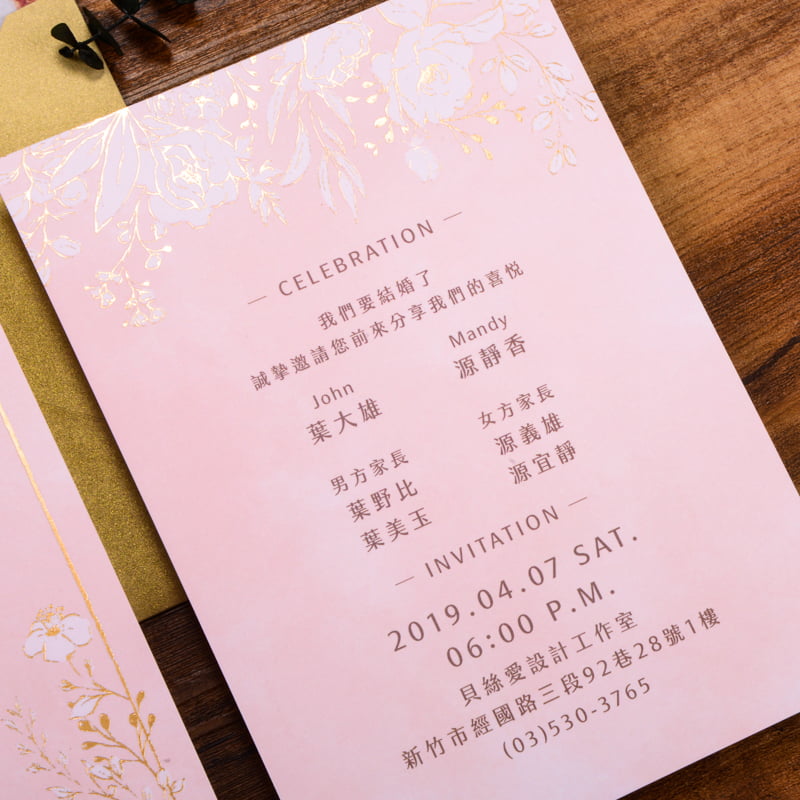 — CELEBRATION —
我們要結婚了
誠摯邀請您前來分享我們的喜悅
John
葉大雄
Mandy
源靜香
男方家長
葉野比
葉美玉
女方家長
源義雄
源宜靜
— INVITATION —
2019.04.07 SAT.
06:00 P.M.
貝絲愛設計工作室
新竹市經國路三段92巷28號1樓
(03)530-3765